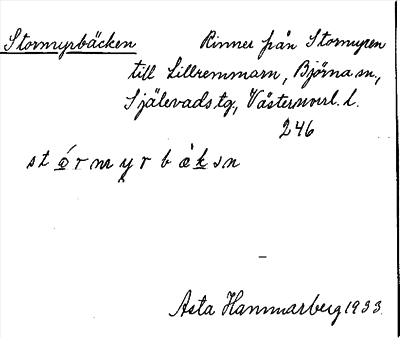 Stormyrbäcken Rinner från Stormyren
till Lillremmarn, Björna sn,
Själevads tg, Västernorrl. l.
246
Asta Hammarberg 1933.